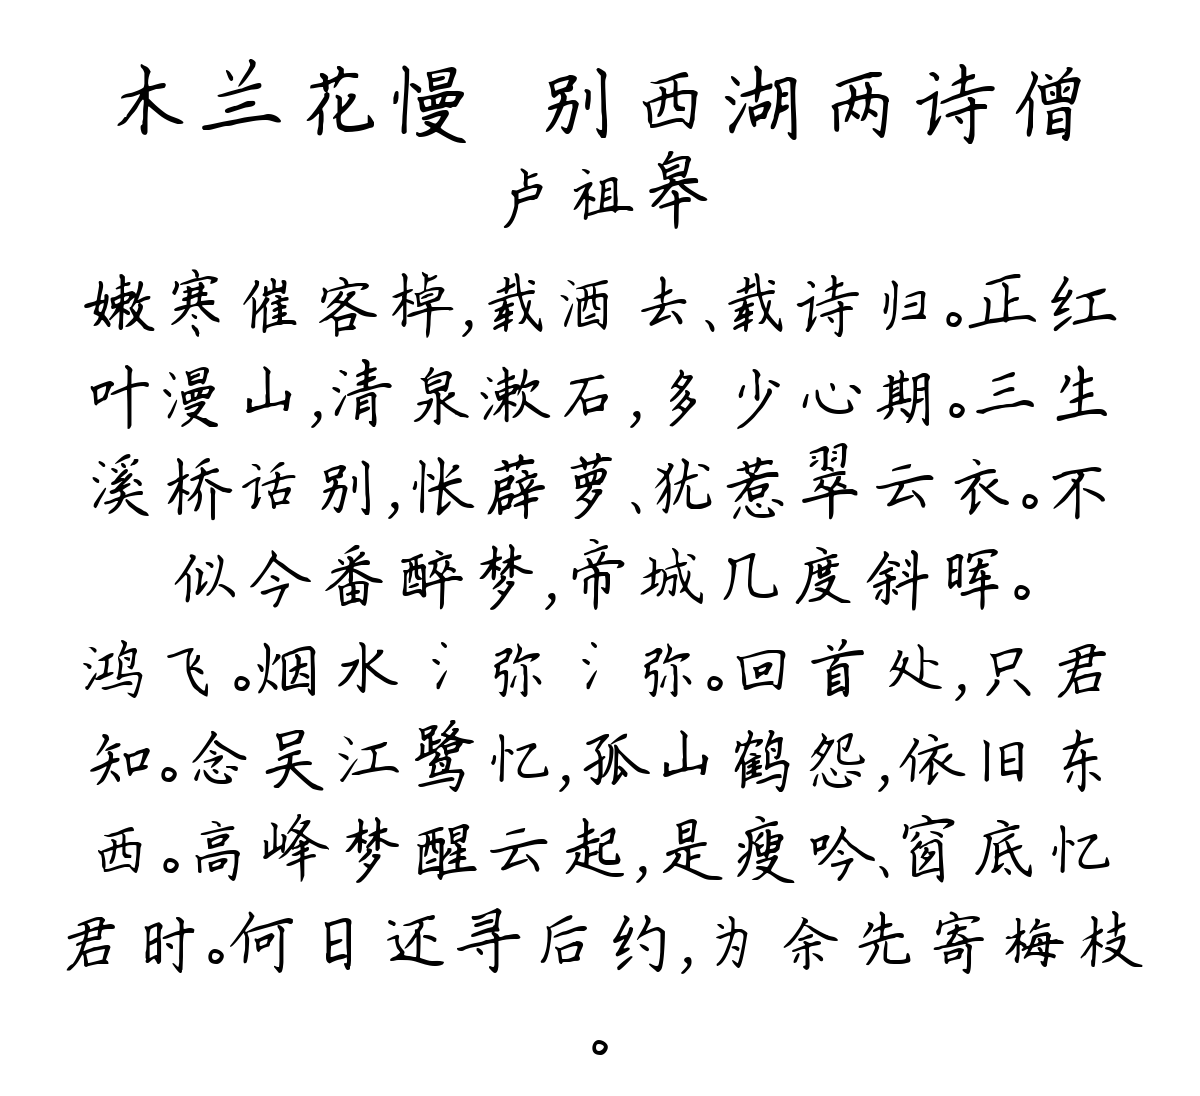 木兰花慢 别西湖两诗僧
卢祖皋
嫩寒催客棹,载酒去、载诗归。正红
叶漫山,清泉漱石,多少心期。三生
溪桥话别,怅薜萝、犹惹翠云衣。不
似今番醉梦,帝城几度斜晖。
鸿飞。烟水氵弥氵弥。回首处,只君
知。念吴江鹭忆,孤山鹤怨,依旧东
西。高峰梦醒云起,是瘦吟、窗底忆
君时。何日还寻后约,为余先寄梅枝
。